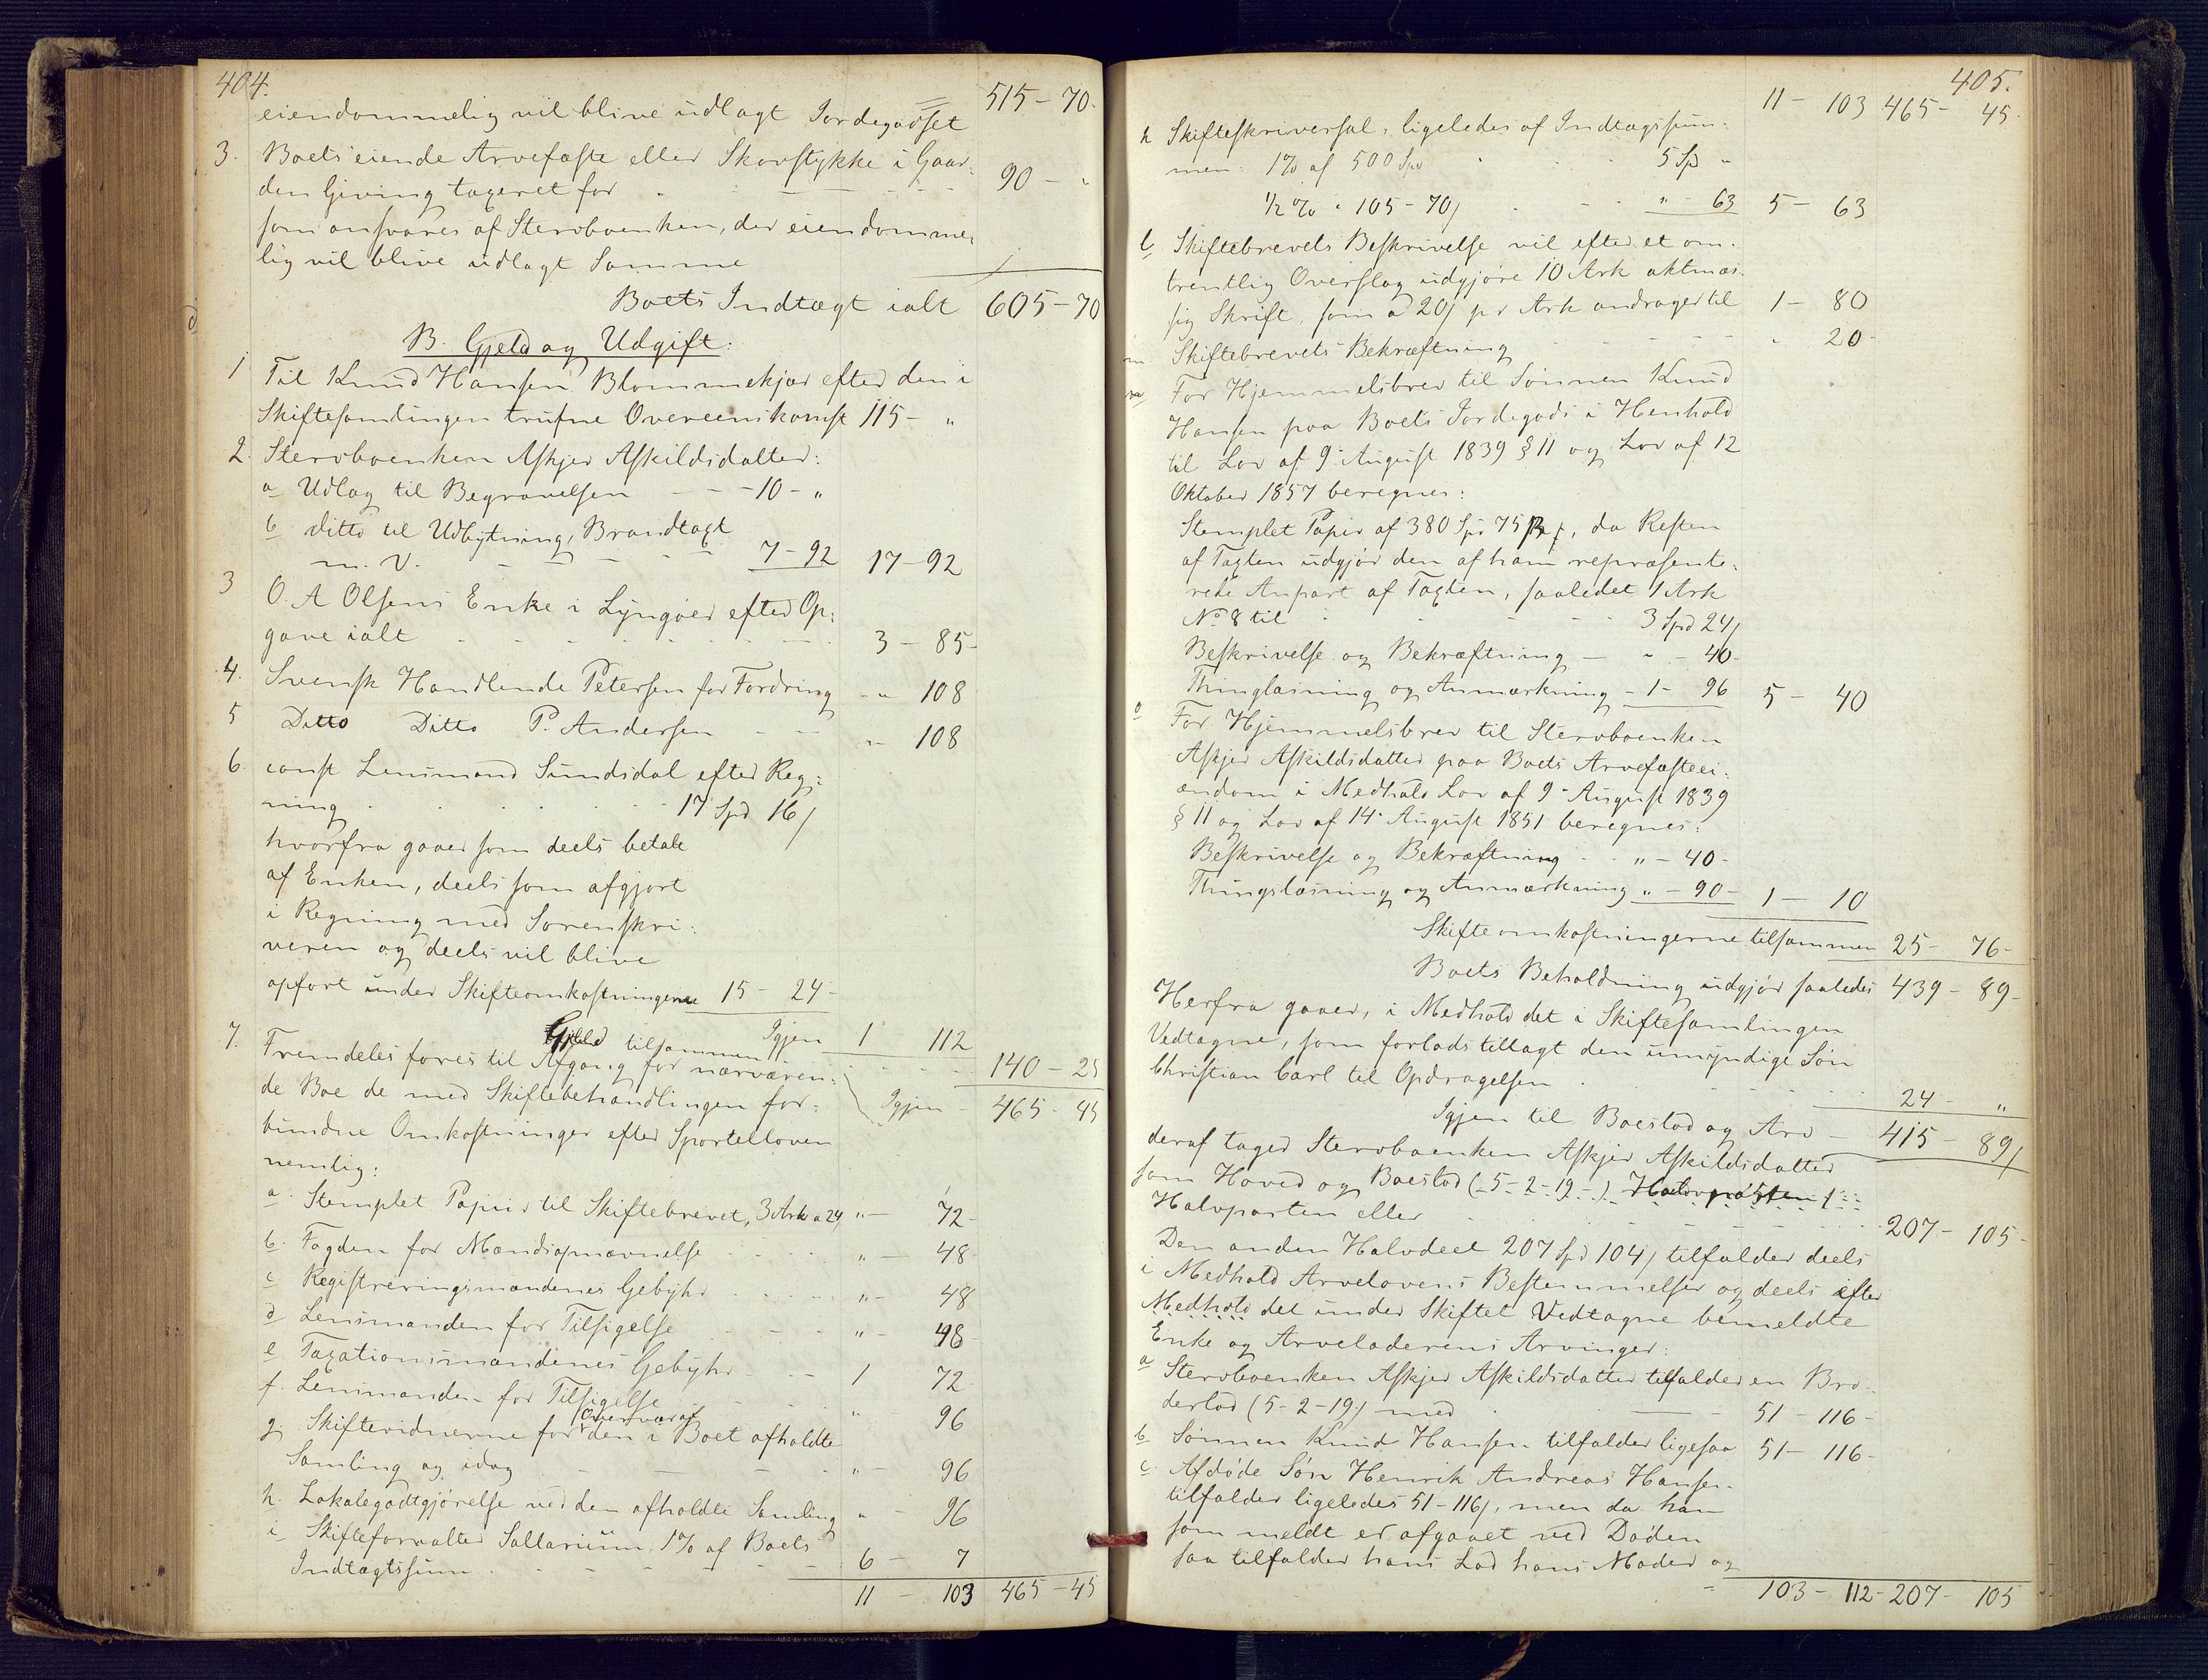 404.
515 - 70.
eiendommelig vil blive udlagt Jordegodset
3. Boets eiende Arvefæste eller Skovstykke i Gaar-
den Gjeving taxeret for - - - 90 - "
som ansvares af Stervboenken, der eiendomme-
lig vil blive udlagt Samme
Boets Indtægt ialt 605 - 70
B. Gjeld og Udgift:
1 Til Knud Hansen Blommekjær efter den i
Skiftesamlingen trufne Overeenskomst 115 - "
2. Stervboenken Askjer Askildsdatter:
a Udlag til Begravelsen - - - 10 - "
b ditto til Udbytning, Brandtagt
m. V. - - - 7 - 92 17 - 92
3 O. A Olsens Enke i Lyngøer efter Op-
gave ialt - - - 3 - 85 -
4. Svensk Handlende Petersen for Fordring - " 108
5 Ditto Ditto P. Andersen - - - " 108
6. const Lensmand Sundsdal efter Reg-
ning . . . 17 Spd 16 /
hvorfra gaaer som deels betalt
af Enken, deels som afgjort
i Regning med Sorenskri-
veren og deels vil blive
opført under Skifteomkostningerne 15 - 24 -
Igjen 1 112
Gjeld tilsammen - - - 140 - 25
7. Fremdeles føres til Afgang for nærværen- Igjen - 465 - 45
de Boe de med Skiftebehandlingen for-
bundne Omkostninger efter Sportelloven
nemlig:
a. Stemplet Papiir til Skiftebrevet, 3 Ark a 24 / " - 72 -
b. Fogden for Mændsopnævnelse - - " - 48
c Registreringsmændenes Gebyhr - - " - 48
d Lensmanden for Tilsigelse - - " - 48 -
e Taxationsmændenes Gebyhr - - 1 72
f. Lensmanden for Tilsigelse - - " 96
g. Skiftevidnerne for Overvær af den i Boet afholdte
Samling og idag - - - " - 96
h. Lokalegodtgjørelse ved den afholdte Samling " - 96
i Skifteforvalter Sallarium, 1% af Boets
Indtægtssum . - - - 6 - 7
11 - 103 465 - 45
405.
11 - 103 465 - 45 -
k Skifteskriversal, ligeledes af Indtægtssum-
men: 1% af 500 Spd . . 5 Spd "
1/2 % " 105 - 70 / . - - " - 63 5 - 63
l Skiftebrevets Beskrivelse vil efter et om-
trentlig Overslag udgjøre 10 Ark aktmæs-
sig Skrift, som a 20 / pr Ark andrager til 1 - 80
m. Skiftebrevets Bekræftning - - - " 20 -
n For Hjemmelsbrev til Sønnen Knud
Hansen paa Boets Jordegods i Henhold
til Lov af 9. August 1839 § 11 og Lov af 12
Oktober 1857 beregnes:
Stemplet Papir af 380 Spd 75 /, da Resten
af Taxten udgjør den af ham repræsente-
rede Anpart af Taxten, saaledet 1 Ark
No 8 til . - - - 3 Spd 24 /
Beskrivelse og Bekræftning - " - 40 -
Thinglæsning og Anmærkning - 1 - 96 5 - 40
o For Hjemmelsbrev til Stervboenken
Askjer Askildsdatter paa Boets Arvefæsteei-
endom i Medhold Lov af 9. August 1839
§ 11 og Lov af 14. August 1851 beregnes:
Beskrivelse og Bekræftning . . " - 40 -
Thinglæsning og Anmærkning " - 90 - 1 - 10
Skifteomkostningerne tilsammen 25 - 76 -
Boets Beholdning udgjør saaledes 439 - 89 -
Herfra gaaer, i Medhold det i Skiftesamlingen
Vedtagne, som forlods tillagt den umyndige Søn
Christian Carl til Opdragelsen . - - - 24 - "
Igjen til Boeslod og Arv - 415 - 89 /
deraf tager Stervboenken Askjer Askildsdatter
som Hoved og Boeslod (5 - 2 - 19 -) Halvparten
Halvparten eller - - - 207 - 105 -
Den anden Halvdeel 207 Spd 104 / tilfalder deels
i Medhold Arvelovens Bestemmelser og deels efter
Medhold det under Skiftet Vedtagne bemeldte
Enke og Arveladerens Arvinger:
a Stervboenken Askjer Askildsdatter tilfalder en Bro-
derlod (5 - 2 - 19 /) med . - - 51 - 116 -
b Sønnen Knud Hansen tilfalder ligesaa 51 - 116 -
c. Afdøde Søn Henrik Andreas Hansen
tilfalder ligeledes 51 - 116 /, men da han
som meldt er afgaaet ved Døden
saa tilfalder hans Lod hans Moder og
- 103 - 112 - 207 - 105